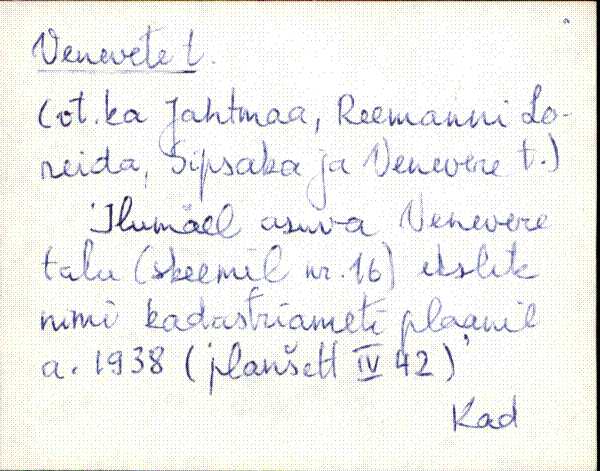 Venevete t.
(vt. ka Jahtmaa, Reemanni Lo-
reida, Sipsaka ja Venevere t.)
'Ilumäel asuva Venevere
talu (skeemil nr. 16) ekslik
nimi kadastriameti plaanil
a. 1938 (planšett IV 42)'
Kad